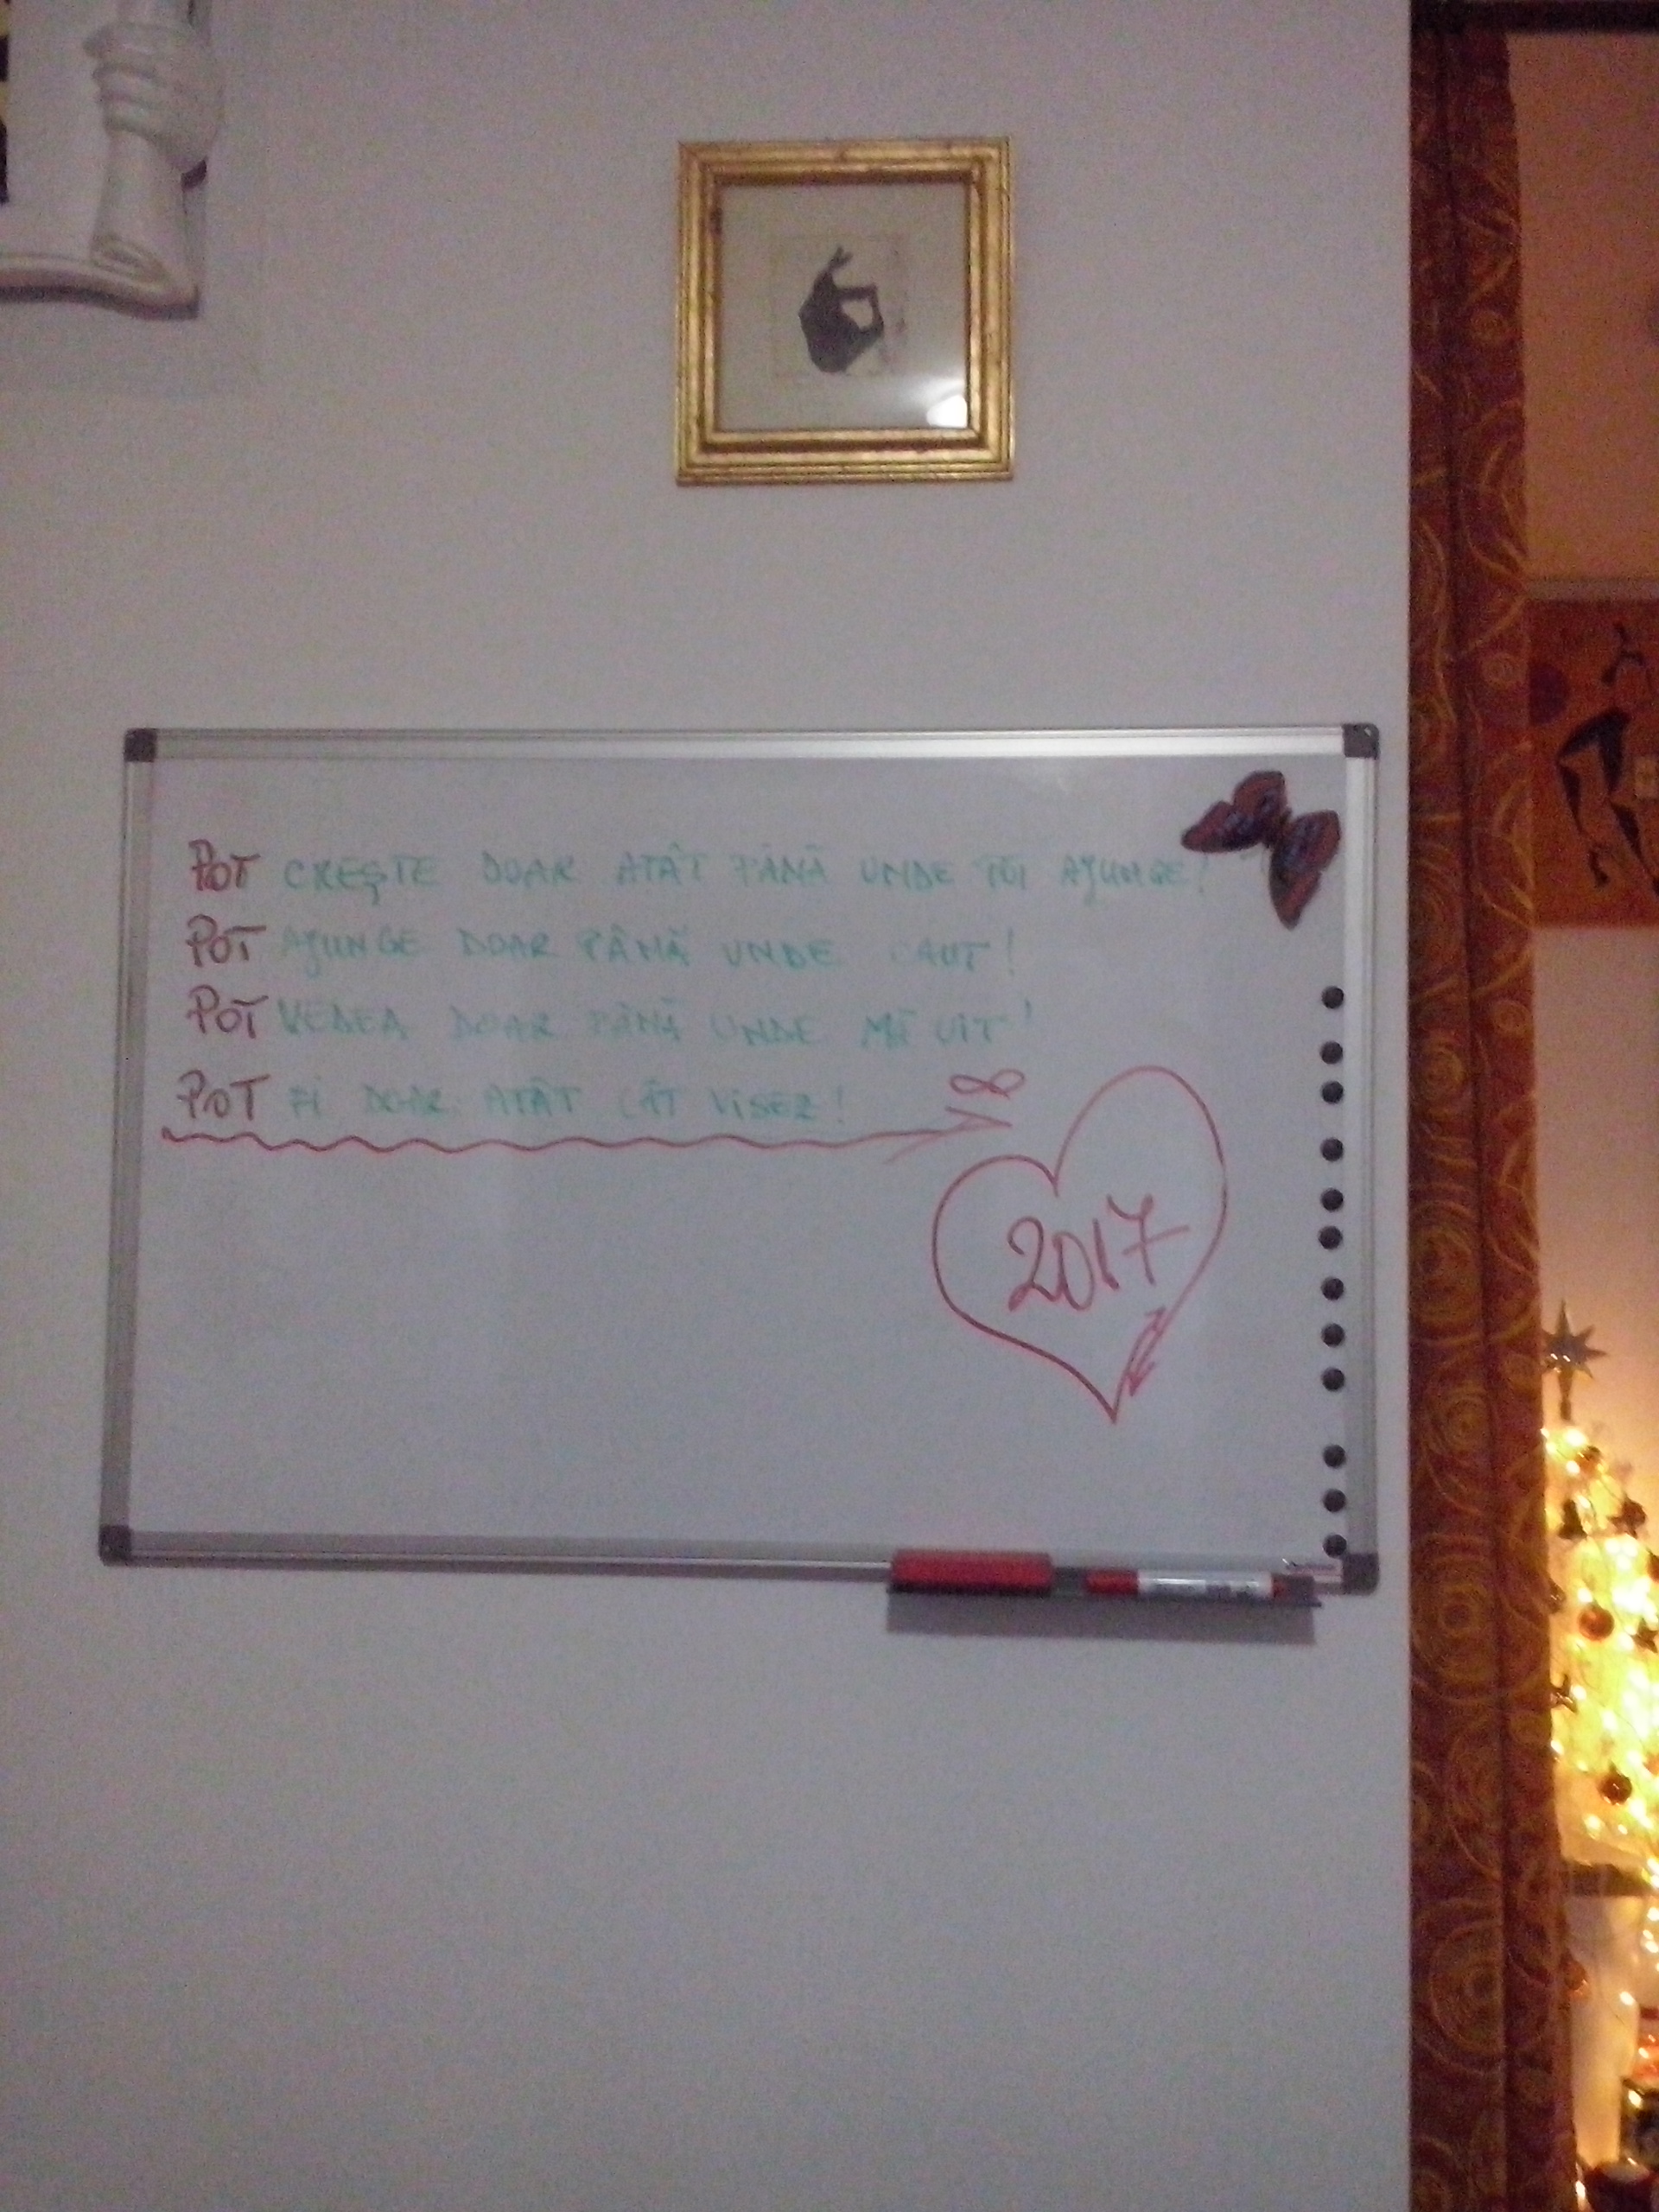 POT CREȘTE DOAR ATÂT PÂNĂ UNDE POT AJUNGE!
POT AJUNGE DOAR PÂNĂ UNDE CAUT!
POT VEDEA DOAR PÂNĂ UNDE MĂ UIT!
POT FI DOAR ATÂT CÂT VISEZ!
∞
2017